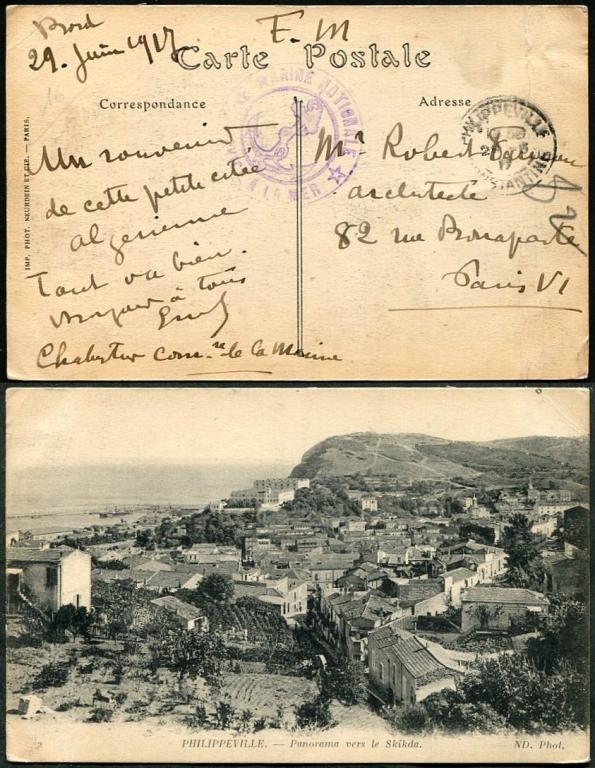 Bord
29. Juin 1917
F. M
Carte Postale
Correspondance
Adresse
MARINE NATIONALE
A LA MER
PHILIPPEVILLE
CONSTANTINE
IMP. PHOT. NEURDEIN ET CIE. — PARIS.
Un souvenir
de cette petite cité
algérienne
Tout va bien.
à tous
Com.re de la Marine
Mr Robert
architecte
82 rue Bonaparte
Paris VI
PHILIPPEVILLE. — Panorama vers le Skikda.
ND. Phot.